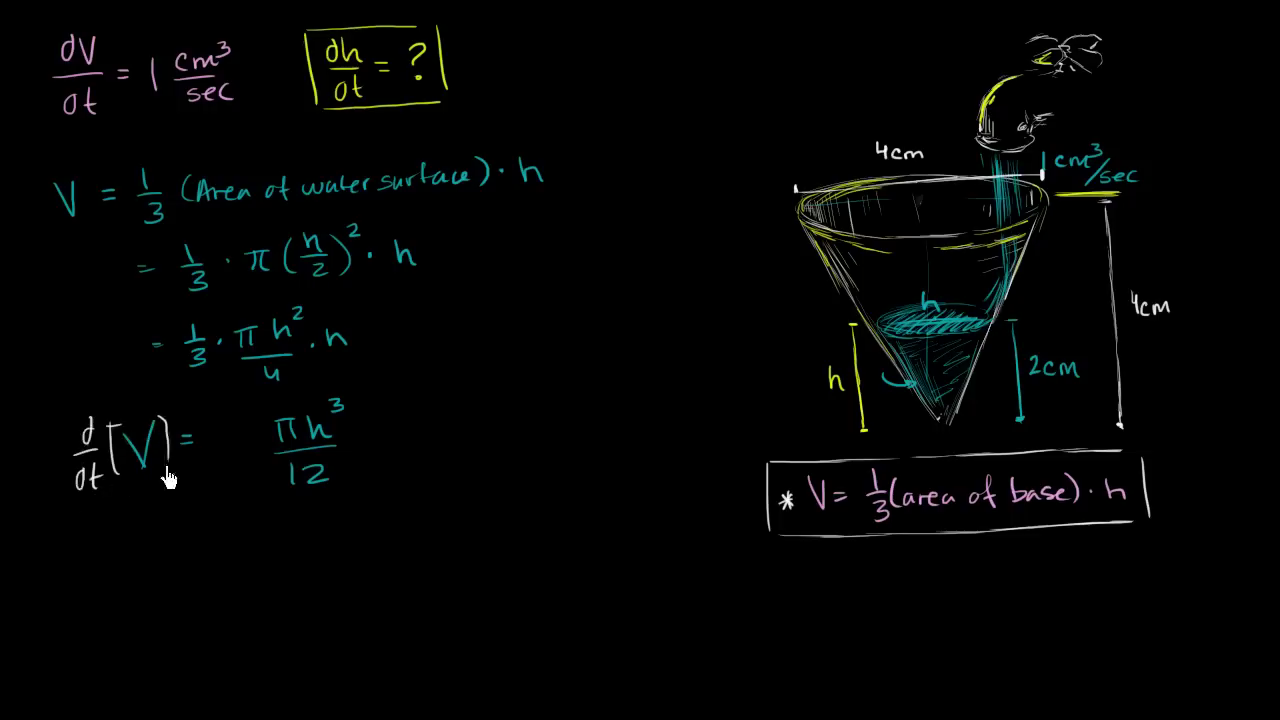 dV/dt = 1 cm³/sec
dh/dt = ?
V = 1/3 (Area of water surface) · h
= 1/3 · π (h/2)² · h
= 1/3 · πh²/4 · h
d/dt [V] = πh³/12
4cm
1 cm³/sec
h
4cm
h
2cm
* V = 1/3 (area of base) · h